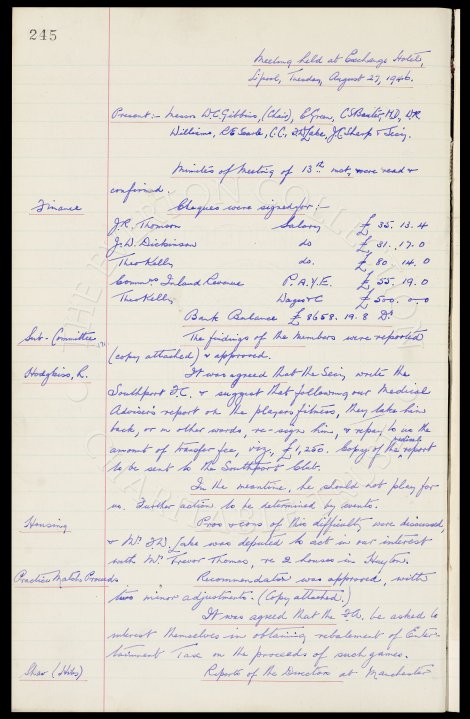 245
Meeting held at Exchange Hotel,
L'pool, Tuesday, August 27, 1946.
Present:- Messrs W.C. Gibbins, (Chair), E Green, C.S. Baxter, M.D., W.R.
Williams, R.E. Searle, C.C., F.W. Lake, J.C. Sharp & Secy.
Minutes of Meeting of 13th inst, were read &
confirmed.
Finance Cheques were signed for:-
J.R. Thomson Salary £ 35. 13. 4
J.W. Dickinson do £ 31. 17. 0
Theo Kelly do. £ 80. 14. 0
Commrs Inland Revenue P.A.Y.E. £ 55. 19. 0
Theo Kelly Wages &c £ 500. 0. 0
Bank Balance £ 8658. 19. 8 Dr
Sub-Committee The findings of the members were reported
(copy attached) & approved.
Hodgkiss, R. It was agreed that the Secy, write the
Southport F.C. & suggest that following our Medical
Adviser's report on the players fitness, they take him
back, or in other words, re-sign him, & repay to us the
amount of transfer fee, viz, £1,250. Copy of the medical report
to be sent to the Southport Club.
In the meantime, he should not play for
us. Further action to be determined by events.
Housing Pros & cons of this difficulty were discussed,
& Mr F.W. Lake was deputed to act in our interest
with Mr Trevor Thomas, re 2 houses in Huyton.
Practice Match Proceeds Recommendation was approved, with
two minor adjustments. (Copy attached.)
It was agreed that the F.A. be asked to
interest themselves in obtaining rebatement of Enter-
tainment Tax on the proceeds of such games.
Shaw (Hibs) Reports of the Directors at Manchester
THE EVERTON COLLECTION
CHARITABLE TRUST